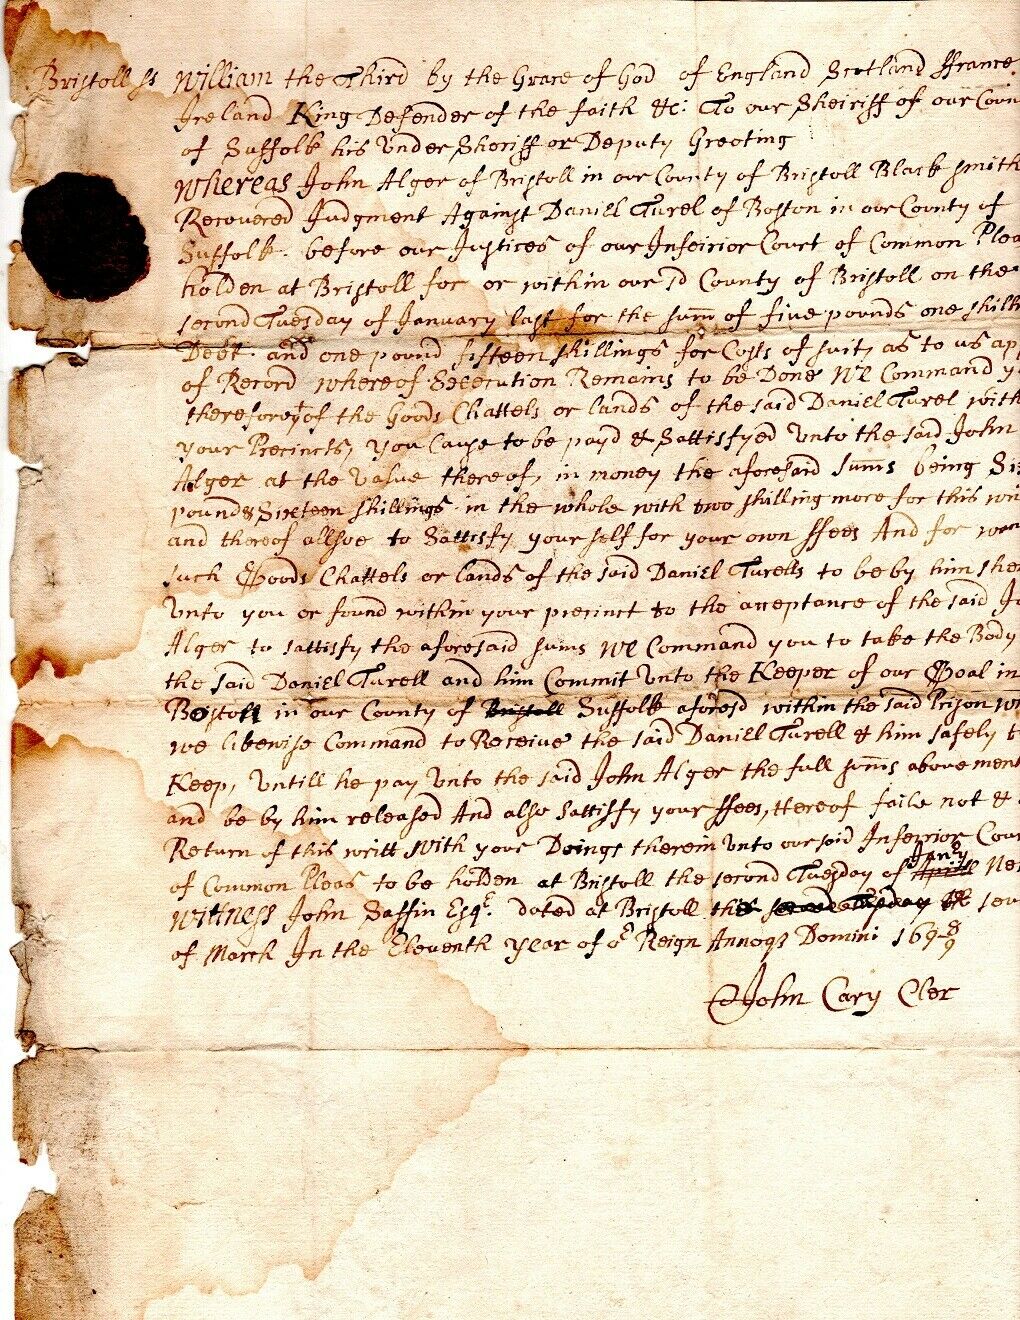 Bristoll ss William the Third by the Grace of God of England Scotland ffrance
Ireland King Defender of the faith &c: To our Sheiriff of our Coun
of Suffolk his Under Sheriff or Deputy Greeting
Whereas John Alger of Bristoll in our County of Bristoll Black smith
Recovered Judgment Against Daniel Turel of Boston in our County of
Suffolk before our Justices of our Inferior Court of Common Plea
holden at Bristoll for or within our sd County of Bristoll on the
second Tuesday of January last for the sum of five pounds one shill
Debt and one pound fifteen shillings for Costs of suit, as to us ap
of Record whereof Execution Remains to be Done We Command y
therefore yt of the Goods Chattels or lands of the said Daniel Turel with
your Precincts, you Cause to be payd & Sattisfyed unto the said John
Alger at the value thereof, in money the aforesaid sums being Si
pounds Sixteen shillings in the whole with two shilling more for this wri
and thereof allsoe to Sattisfy your self for your own ffees And for wan
such Goods Chattels or lands of the said Daniel Turells to be by him she
unto you or found within your precinct to the acceptance of the said Jo
Alger to sattisfy the aforesaid sums We Command you to take the Body
the said Daniel Turell and him Commit unto the Keeper of our Goal in
Boston in our County of Bristoll Suffolk aforesd within the said Prison w
we likewise Command to Receive the said Daniel Turell & him safely t
Keep, untill he pay unto the said John Alger the full sums above ment
and be by him released And also sattisfy your ffees, Hereof faile not &
Return of this writt with your Doings therein unto our said Inferior Cour
of Common Pleas to be holden at Bristoll the second Tuesday of April Jany Nex
Witness John Saffin Esqr. dated at Bristoll the second Tuesday the sev
of March In the Eleventh year of or Reign Annoqs Domini 1698/9
John Cary Cler